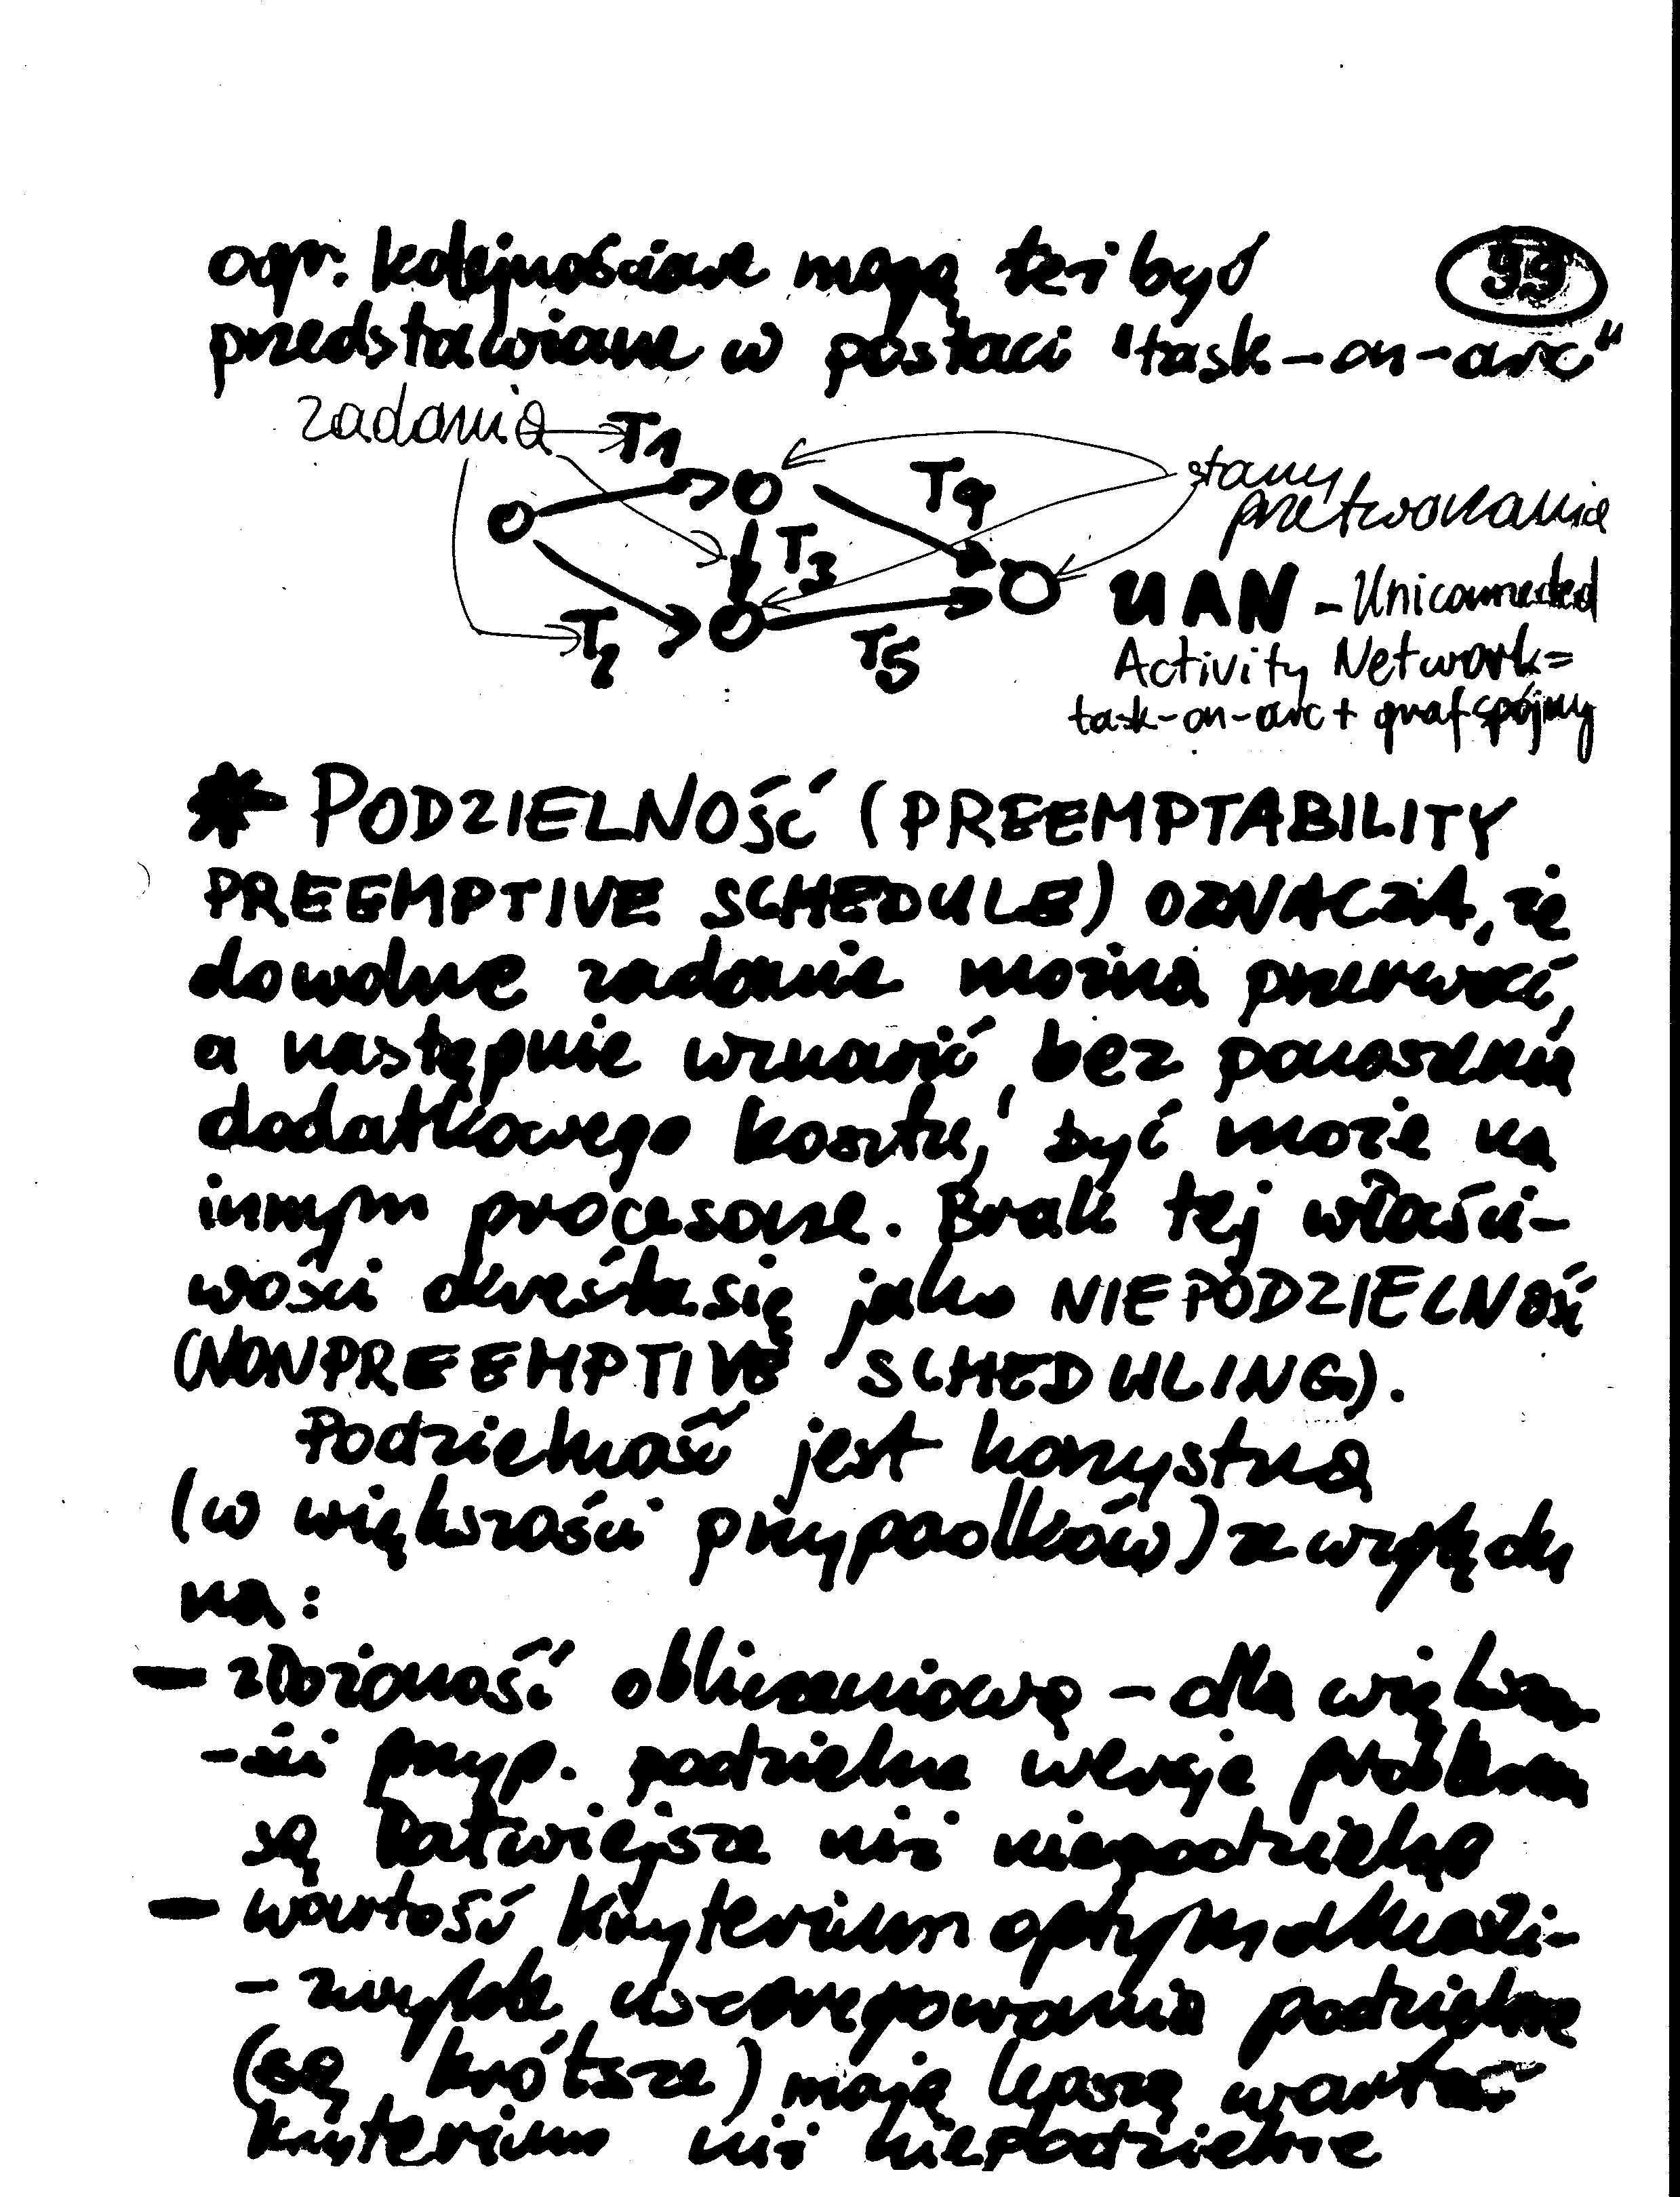 ogr. kolejnościowe mogą też być
przedstawione w postaci "task-on-arc"
zadania
T1
T4
stany
przetwarzania
T3
T2
T5
UAN - Uniconnected
Activity Network=
task-on-arc + graf spójny
* PODZIELNOŚĆ (PREEMPTABILITY
PREEMPTIVE SCHEDULE) OZNACZA, że
dowolne zadanie można przerwać,
a następnie wznowić bez ponoszenia
dodatkowego kosztu, być może na
innym procesorze. Brak tej właści-
wości określa się jako NIEPODZIELNOŚĆ
(NONPREEMPTIVE SCHEDULING).
Podzielność jest korzystna
(w większości przypadków) ze względu
na:
- złożoność obliczeniową - dla większo-
-ści przyp. podzielne wersje problemu
są łatwiejsze niż niepodzielne
- wartość kryterium optymalności-
- zwykle uszeregowania podzielne
(są krótsze) mają lepszą wartość
kryterium niż niepodzielne